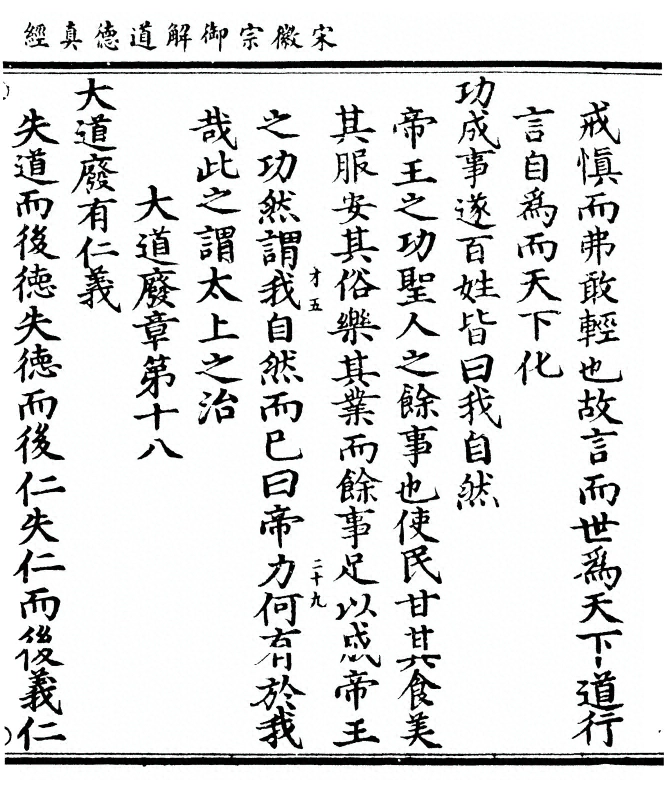 宋徽宗御解道德真經
戒慎而弗敢輕也故言而世爲天下道行
言自爲而天下化
功成事遂百姓皆曰我自然
帝王之功聖人之餘事也使民甘其食美
其服安其俗樂其業而餘事足以成帝王
之功然謂我自然而已曰帝力何有於我
才五
二十九
哉此之謂太上之治
大道廢章第十八
大道廢有仁義
失道而後德失德而後仁失仁而後義仁